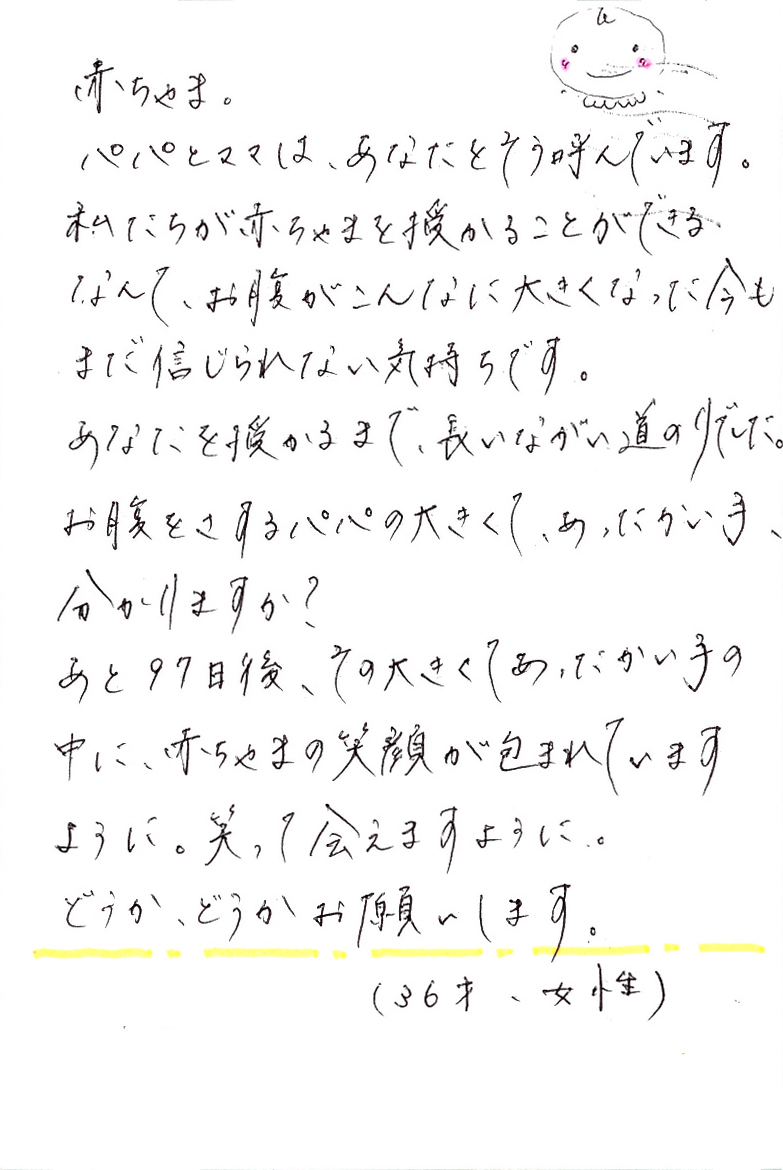 赤ちゃま。
パパとママは、あなたをそう呼んでいます。
私たちが赤ちゃまを授かることができる
なんて、お腹がこんなに大きくなった今も
まだ信じられない気持ちです。
あなたを授かるまで、長いながい道のりでした。
お腹をさするパパの大きくて、あったかい手、
分かりますか?
あと97日後、その大きくてあったかい手の
中に、赤ちゃまの笑顔が包まれています
ように。笑って会えますように。
どうか、どうかお願いします。
(36才、女性)